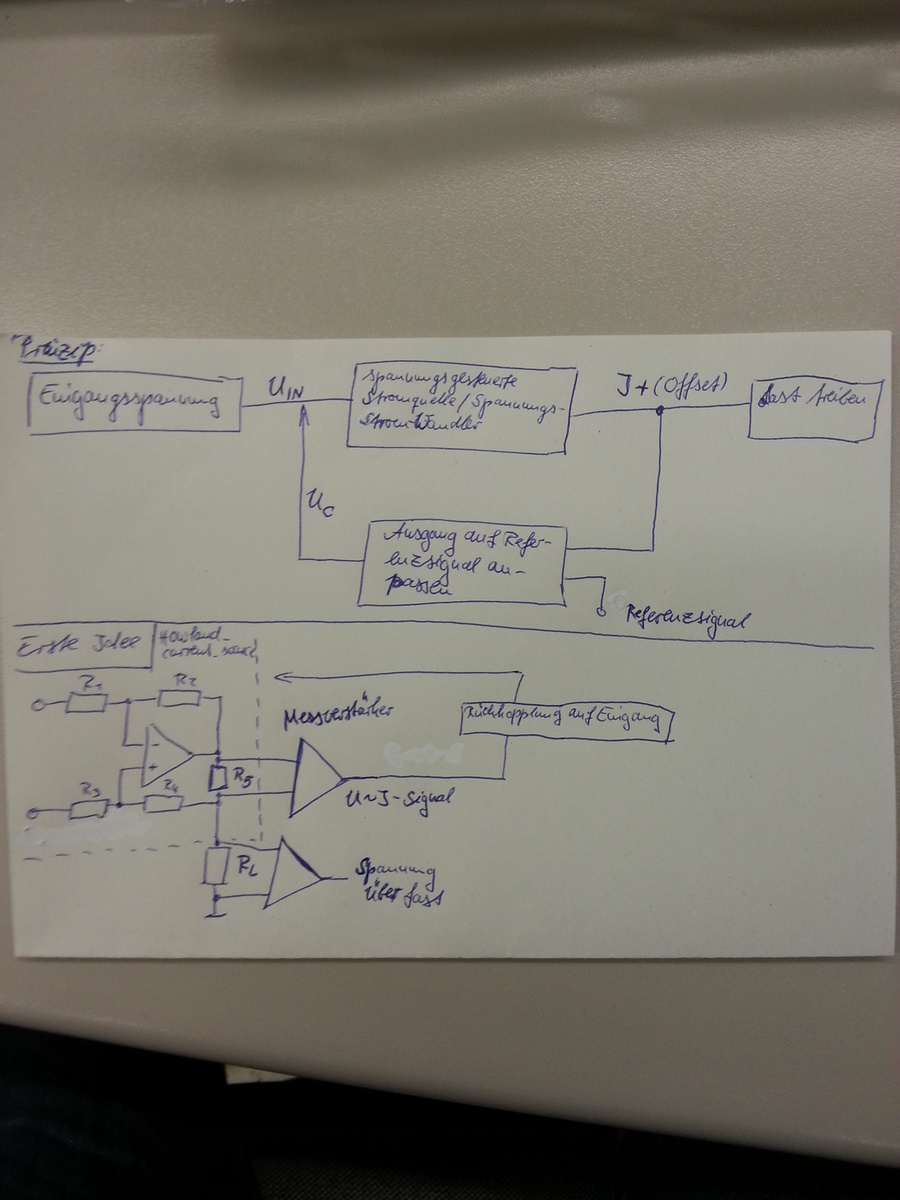 Prinzip:
Eingangsspannung
U_IN
Spannungsgesteuerte
Stromquelle/Spannungs-
Strom Wandler
I + (Offset)
Last treiben
U_C
Ausgang auf Refer-
enzsignal an-
passen
Referenzsignal
Erste Idee
Howland-
current-source
R1
R2
Messverstärker
Rückkopplung auf Eingang
-
+
R5
R3
R4
U~I-Signal
RL
Spannung
über Last